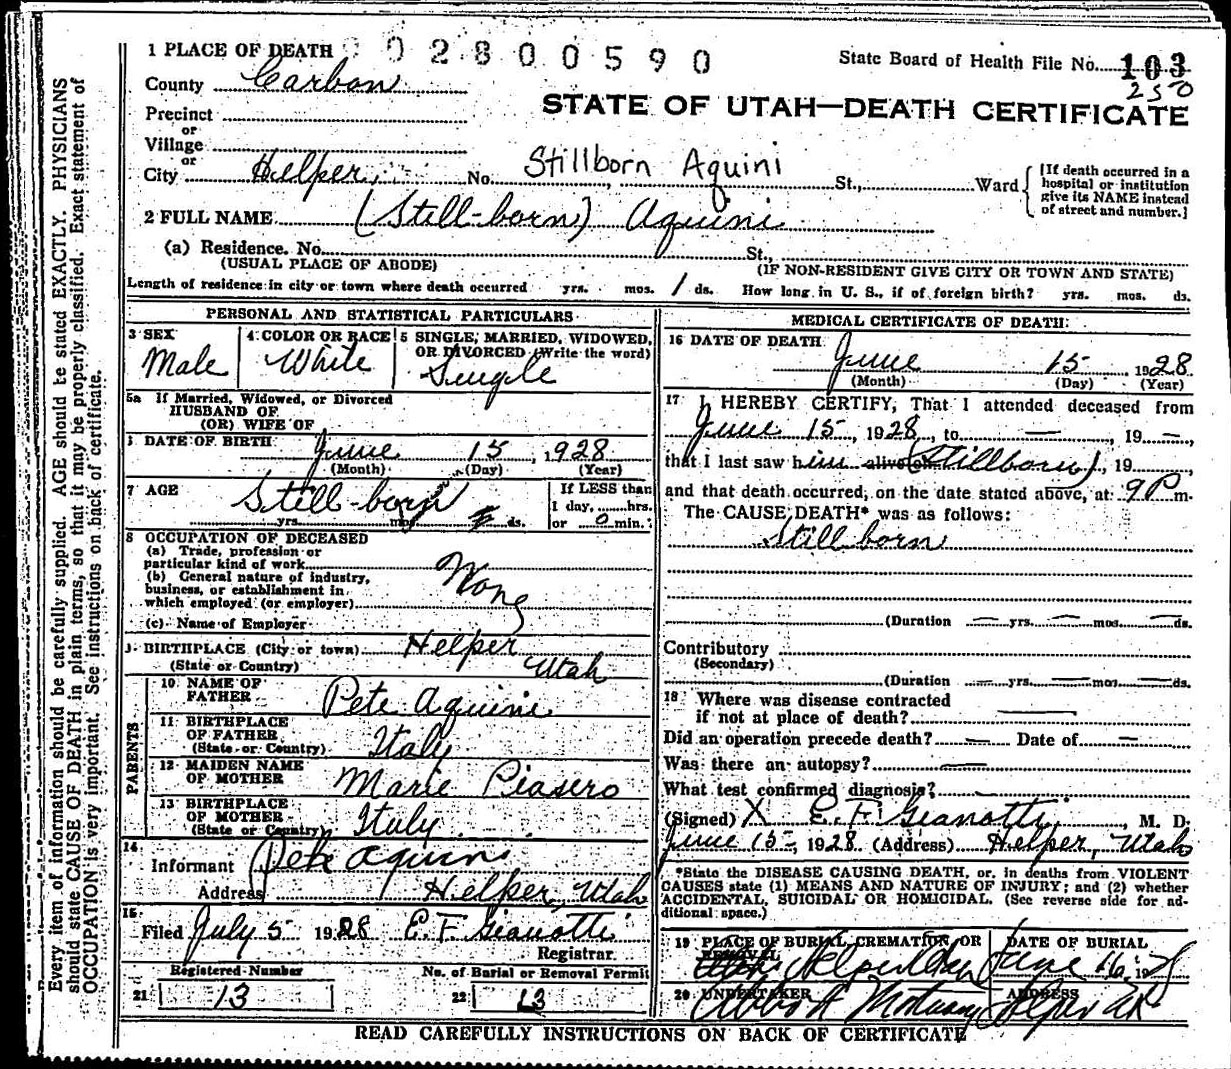 1 PLACE OF DEATH 02800590
State Board of Health File No. 103
250
County Carbon
STATE OF UTAH—DEATH CERTIFICATE
Precinct
or
Village
or
City Helper, No. Stillborn Aquini St., Ward
[If death occurred in a hospital or institution give its NAME instead of street and number.]
2 FULL NAME (Still-born) Aquini
(a) Residence. No. St.,
(USUAL PLACE OF ABODE) (IF NON-RESIDENT GIVE CITY OR TOWN AND STATE)
Length of residence in city or town where death occurred yrs. mos. 1 ds. How long in U. S., if of foreign birth? yrs. mos. ds.
PERSONAL AND STATISTICAL PARTICULARS
3 SEX Male
4 COLOR OR RACE White
5 SINGLE, MARRIED, WIDOWED, OR DIVORCED (Write the word) Single
5a If Married, Widowed, or Divorced
HUSBAND OF
(OR) WIFE OF
DATE OF BIRTH June 15, 1928
(Month) (Day) (Year)
7 AGE Still-born
yrs. mos. ds.
If LESS than
1 day, hrs.
or 0 min.
8 OCCUPATION OF DECEASED
(a) Trade, profession or
particular kind of work
(b) General nature of industry,
business, or establishment in
which employed (or employer)
(c) Name of Employer
BIRTHPLACE (City or town) Helper
(State or Country) Utah
PARENTS
10 NAME OF FATHER Pete Aquini
11 BIRTHPLACE OF FATHER (State or Country) Italy
12 MAIDEN NAME OF MOTHER Marie Piasero
13 BIRTHPLACE OF MOTHER (State or Country) Italy
14 Informant Pete Aquini
Address Helper, Utah
15 Filed July 5 1928 E. F. Gianotti
Registrar.
Registered Number
21 13
No. of Burial or Removal Permit
22 13
MEDICAL CERTIFICATE OF DEATH
16 DATE OF DEATH June 15 1928
(Month) (Day) (Year)
17 I HEREBY CERTIFY, That I attended deceased from
June 15, 1928, to —, 19 —,
that I last saw him alive on (Stillborn), 19
and that death occurred, on the date stated above, at 9 P m.
The CAUSE DEATH* was as follows:
Still born
(Duration — yrs. — mos. — ds.
Contributory
(Secondary)
(Duration — yrs. — mos. — ds.
18 Where was disease contracted
if not at place of death? —
Did an operation precede death? — Date of —
Was there an autopsy? —
What test confirmed diagnosis? —
(Signed) X E. F. Gianotti, M. D.
June 15, 1928 (Address) Helper, Utah
*State the DISEASE CAUSING DEATH, or, in deaths from VIOLENT
CAUSES state (1) MEANS AND NATURE OF INJURY; and (2) whether
ACCIDENTAL, SUICIDAL OR HOMICIDAL. (See reverse side for ad-
ditional space.)
19 PLACE OF BURIAL, CREMATION, OR REMOVAL Helper Utah
DATE OF BURIAL June 16, 1928
20 UNDERTAKER Mortuary
ADDRESS Helper Ut
READ CAREFULLY INSTRUCTIONS ON BACK OF CERTIFICATE
Every item of information should be carefully supplied. AGE should be stated EXACTLY. PHYSICIANS
should state CAUSE OF DEATH in plain terms, so that it may be properly classified. Exact statement of
OCCUPATION is very important. See instructions on back of certificate.